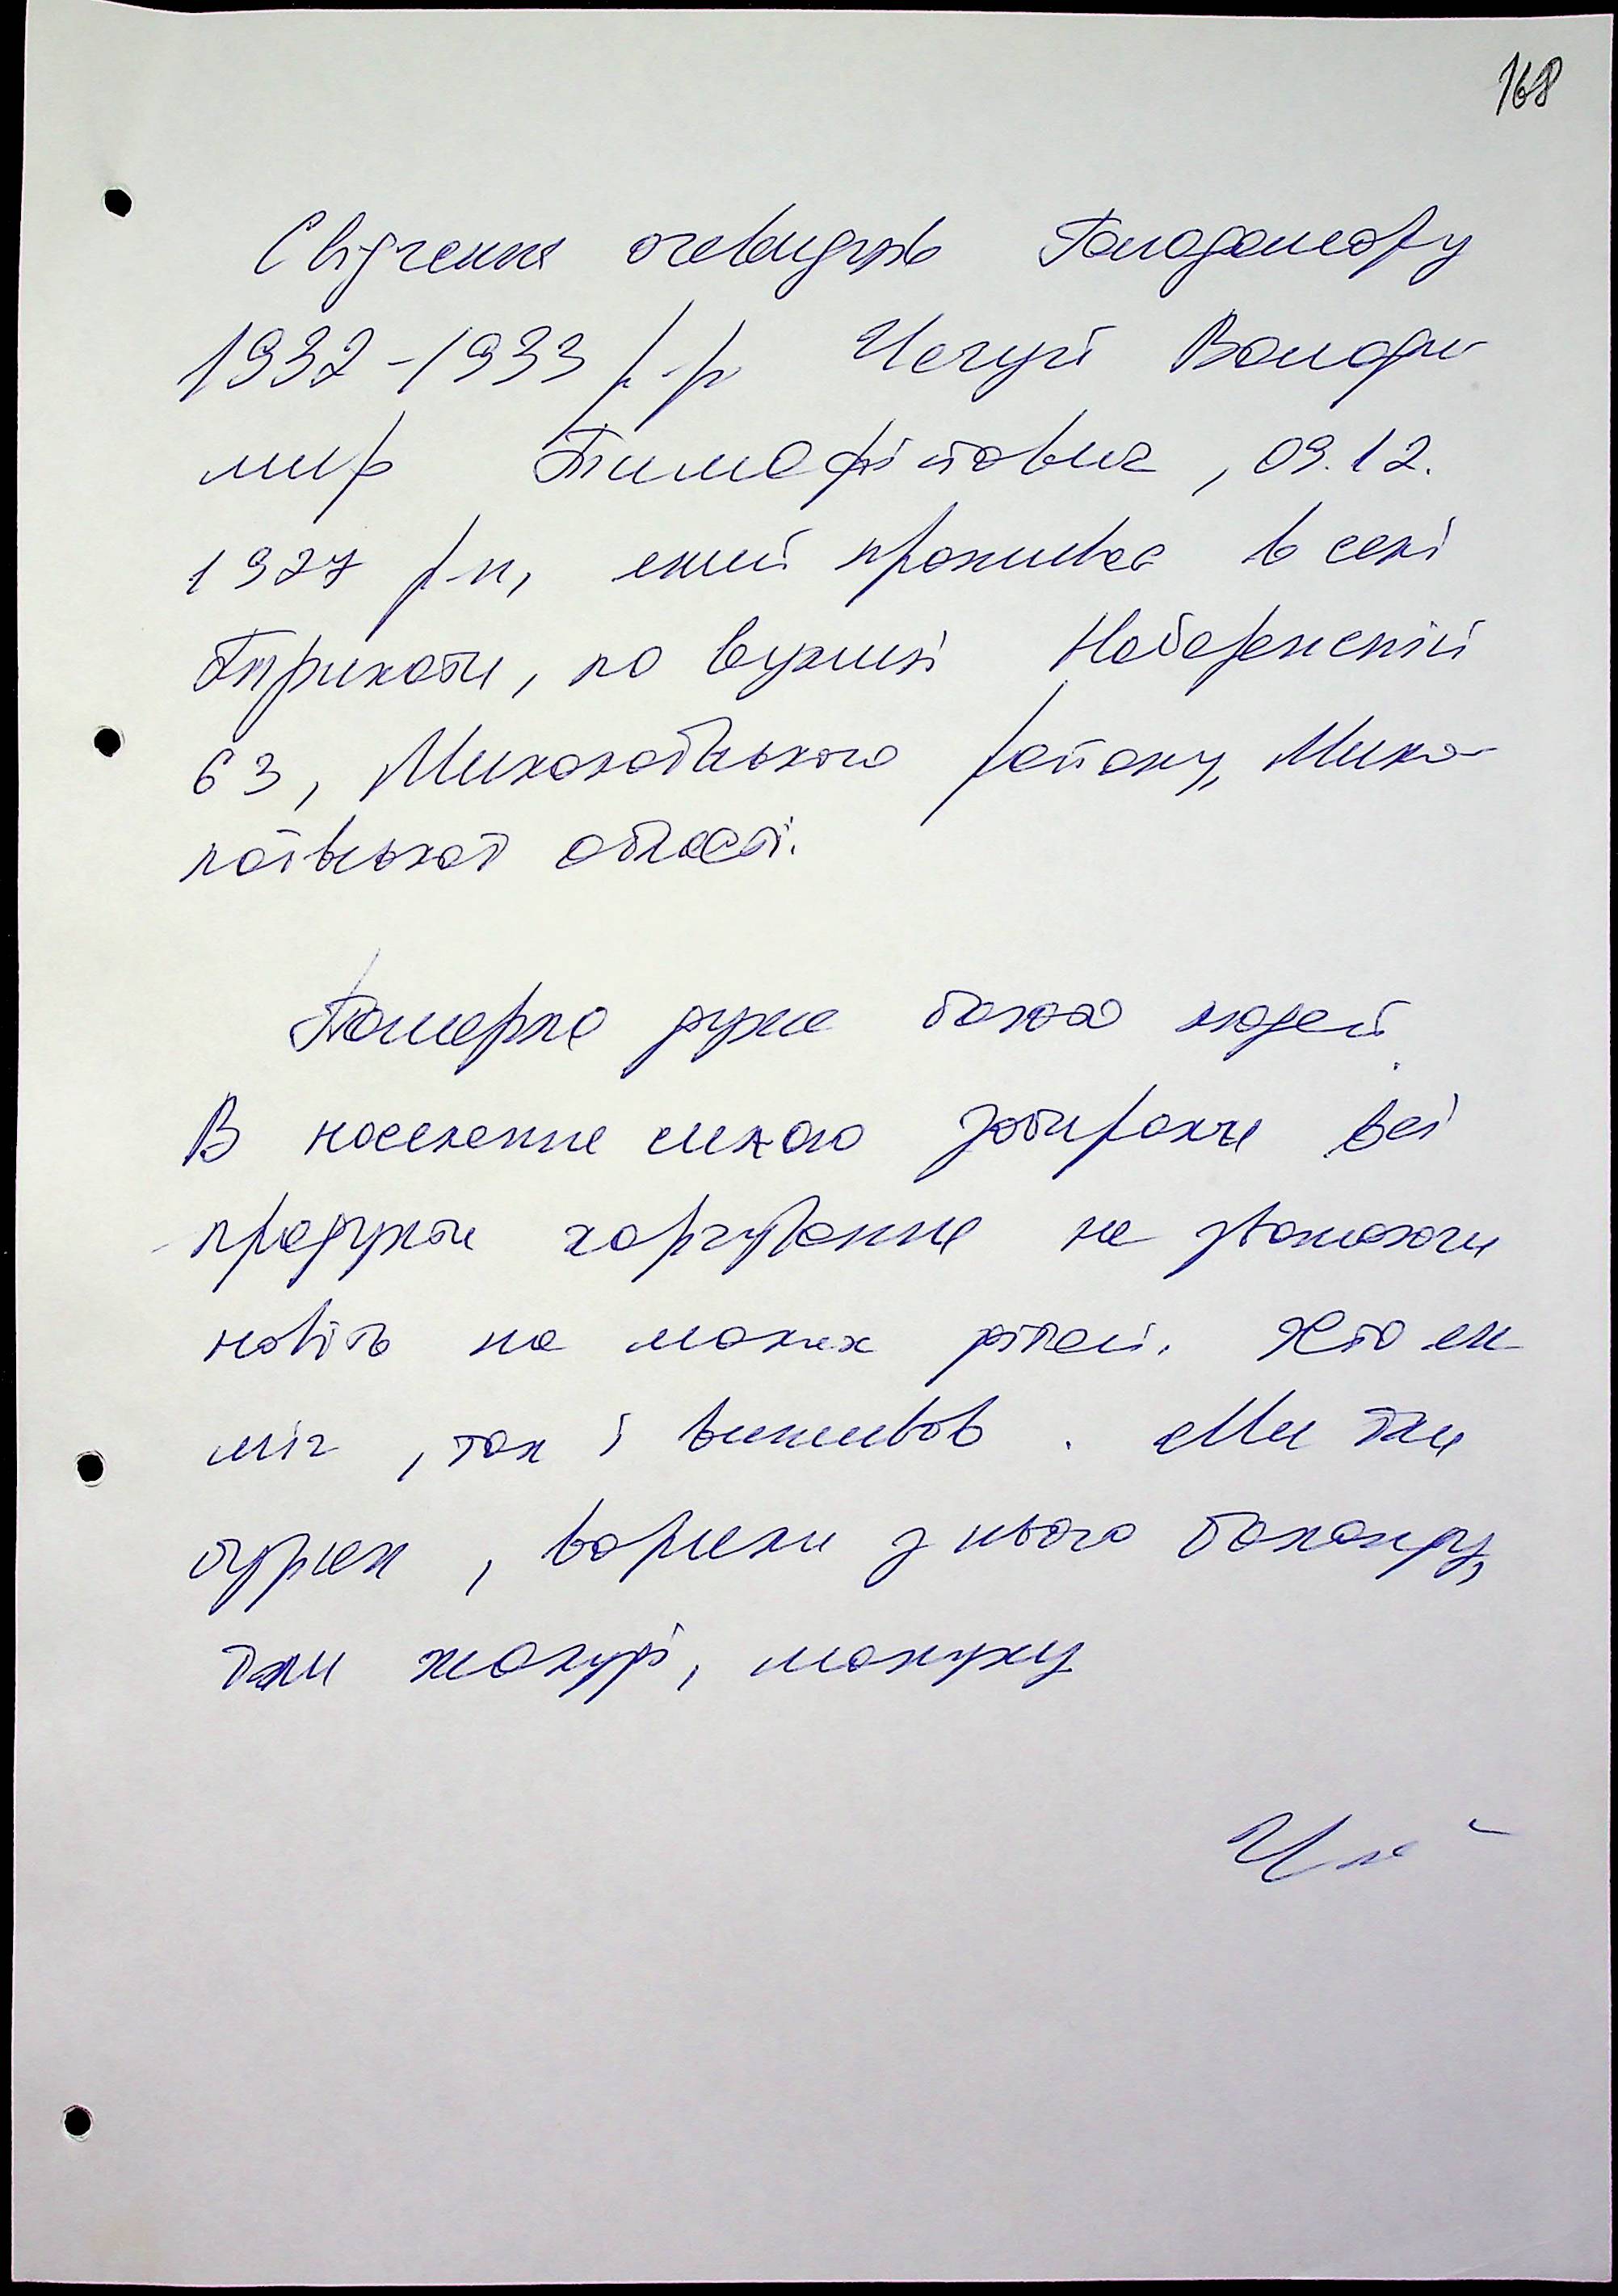 168
Свідчення очевидців Голодомору
1932-1933 р.р Чечугі Володи
мир Тимофійовича, 09.12.
1927 р.н, який проживає в селі
Трихати, по вулиці Набережній
63, Миколаївського району, Мико-
лаївської області.
Померло дуже багато людей.
В населення силою забирали всі
продукти харчування не зважаючи
навіть на малих дітей. Хто як
міг, так і виживав. Ми їли
буряк, варили з нього баланду,
їли жолуді, макуху